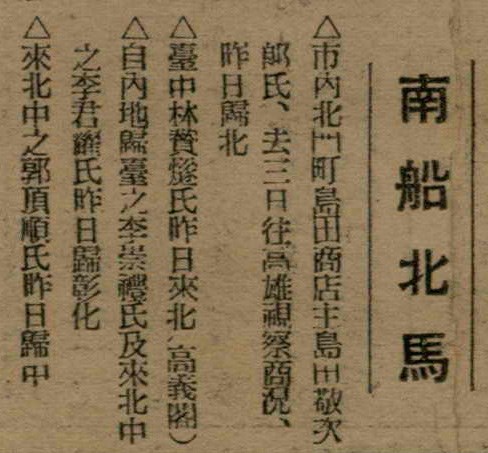 南船北馬
△市內北門町島田商店主島田敬次
郞氏、去三日往高雄視察商況、
昨日歸北
△臺中林贊燧氏昨日來北(高義閣)
△自內地歸臺之李崇禮氏及來北中
之李君耀氏昨日歸彰化
△來北中之郭頂順氏昨日歸中